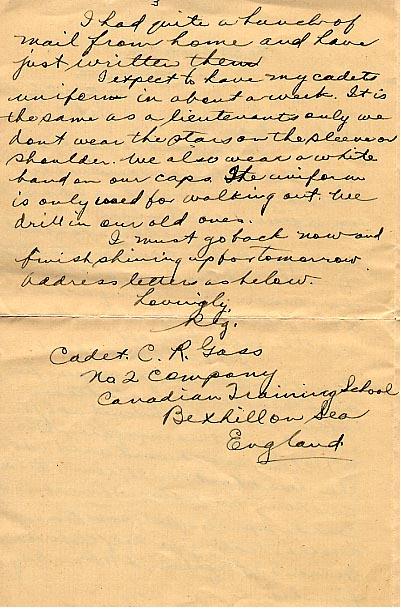 3
I had quite a bunch of
mail from home and have
just written them
I expect to have my cadets
uniform in about a week. It is
the same as a lieutenants only we
dont wear the stars on the sleeve or
shoulder. We also wear a white
band on our caps. The uniform
is only used for walking out. We
drill in our old ones.
I must go back now and
finish shining up for tomorrow
Address letters as below.
Lovingly,
Reg.
Cadet. C. R. Gass
No 2 Company
Canadian Training School
Bexhill on Sea
England.